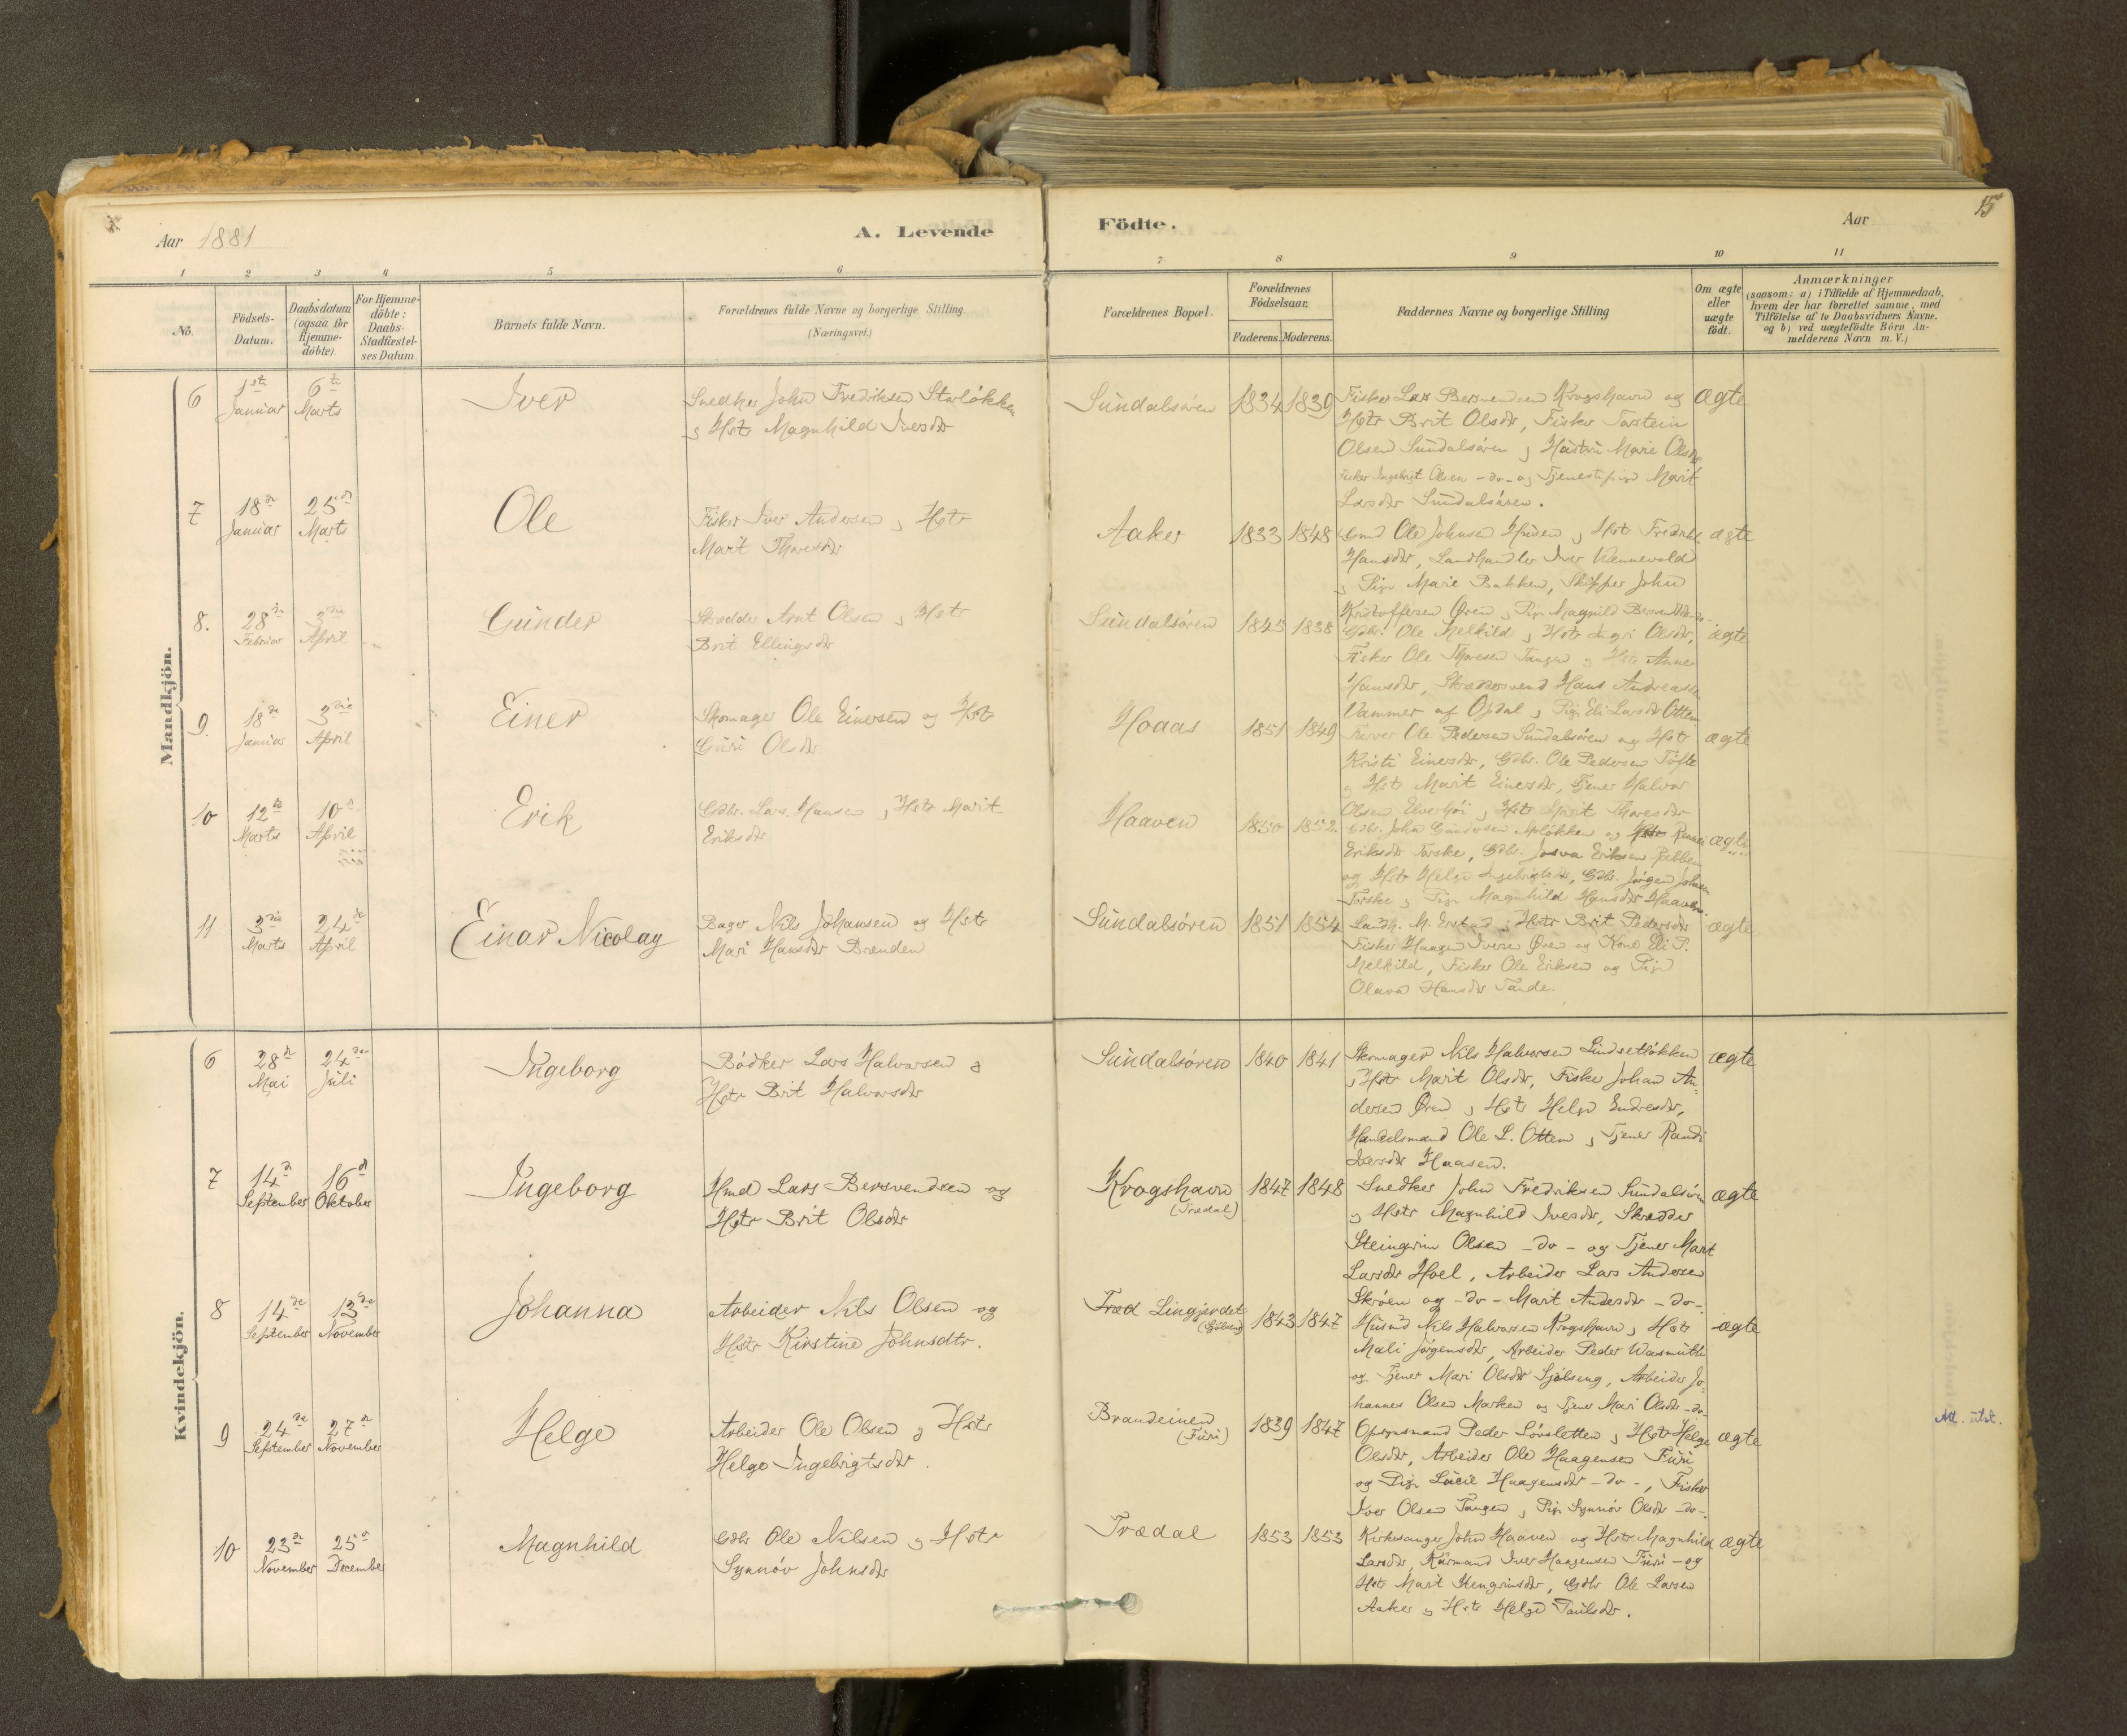 Aar 1881
A. Levende
Födte.
Aar
15
1 2 3 4 5 6 7 8 9 10 11
No.
Födsels-Datum.
Daabsdatum (ogsaa for Hjemme-döbte).
For Hjemme-döbte: Daabs-Stadfæstel-ses Datum
Barnets fulde Navn.
Forældrenes fulde Navne og borgerlige Stilling. (Næringsvei.)
Forældrenes Bopæl.
Forældrenes Födselsaar.
Faderens. Moderens.
Faddernes Navne og borgerlige Stilling
Om ægte eller uægte födt.
Anmærkninger
(saasom: a) i Tilfælde af Hjemmedaab,
hvem der har forrettet samme, med
Tilföielse af to Daabsvidners Navne.
og b) ved uægtefödte Börn An-
melderens Navn m. V.)
Mandkjön.
6 1ste Januar 6te Marts Iver
Snedker John Fredriksen Storløkken
og Hstr Magnhild Iversdr
Sundalsøren 1834 1839
Fisker Lars Bersvendsen Krogshavn og
Hstr Brit Olsdr, Fisker Torstein
Olsen Sundalsøren og Hustru Marie Olsdr
Fisker Ingebrigt Olsen - do - og Tjenestepige Marit
Larsdr Sundalsøren.
ægte
7 18de Januar 25d Marts Ole
Fisker Iver Andersen og Hstr
Marit Thoresdr
Aaker 1833 1848
Ole Johnsen og Hstr Fredrikke
Hansdr, Landhandler Iver Vennevold
og Pige Marie Bakken, Skipper John
Kristoffersen Øren og Pige Magnild Bersvendsdr -do-
ægte
8. 28de Februar 3die April Gunder
Skrædder Arnt Olsen og Hstr
Brit Ellingsdr
Sundalsøren 1845 1838
Gdbr. Ole Melkild og Hstr Ingri Olsdr,
Fisker Ole Thoresen Tangen og Hstr Anne
Hansdr, Skræddersvend Hans Andreassen
Vammer af Opdal og Pige Eli Larsdr Ottem
ægte
9. 18de Januar 3die April Einer
Skomager Ole Einersen og Hstr
Guri Olsdr
Hoaas 1851 1849
Farver Ole Pedersen Sundalsøren og Hstr
Kristi Einersdr, Gdbr. Ole Pedersen Tofte
og Hstr Marit Einersdr, Tjener Halvor
Olsen Elverhøi og Hstr Marit Thoresdr
ægte
10 12te Marts 10d April Erik
Gdbr. Lars Hansen og Hstr Marit
Eriksdr
Haaven 1850 1852.
Gdbr. John Gundersen Moløkken og Hstr
Eriksdr Torske, Gdbr. Josva Eriksen
og Hstr Helge Ingebrigtsdr, Gdbr. Jørgen Johnsen
Torske og Pige Magnhild Hansdr Haaven.
ægte
11 3die Marts 24de April Einar Nicolay
Bager Nils Johansen og Hstr
Mari Hansdr Brænden
Sundalsøren 1851 1854
Landh. M. Erstad og Hstr Brit Pedersdr
Fisker Haagen Iversen Øren og Kone Eli P.
Melkild, Fisker Ole Eriksen og Pige
Olava Hansdr Tande.
ægte
Kvindekjön.
6 28de Mai 24de Juli Ingeborg
Bødker Lars Halvorsen og
Hstr Brit Halvorsdr
Sundalsøren 1840 1841
Skomager Nils Halvorsen Lindsetløkken
og Hstr Marit Olsdr, Fisker Johan An-
dersen Øren og Hstr Helge Endresdr,
Handelsmand Ole L. Ottem og Tjener Randi
Iversdr Haasen.
ægte
7 14d September 16d Oktober Ingeborg
Hmd Lars Bersvendsen og
Hstr Brit Olsdr
Krogshavn (Trædal) 1847 1848
Snedker John Fredriksen Sundalsøren
og Hstr Magnhild Iversdr, Skrædder
Steingrim Olsen - do - og Tjener Marit
Larsdr Hoel, Arbeider Lars Andersen
Skrøen og - do - Marit Andersdr - do -.
ægte
8 14de September 13de November Johanna
Arbeider Nils Olsen og
Hstr Kirstine Johnsdtr.
Lingjerdet 1843 1847
Husmd Nils Halvorsen Krogshavn og Hstr
Mali Jørgensdr, Arbeider Peder Wasmuth
og Tjener Mari Olsdr Sjølseng, Arbeider Jo-
hannes Olsen Marken og Tjener Mari Olsdr -do-
ægte
9 24de September 27d November Helge
Arbeider Ole Olsen og Hstr
Helge Ingebrigtsdr.
Brandeinen (Furi) 1839 1847
Opsynsmand Peder Løvsletten og Hstr Helge
Olsdr, Arbeider Ole Haagensen Furi
og Pige Lucie Haagensdr - do -, Fisker
Iver Olsen Tangen og Pige Synnøv Olsdr - do -.
ægte
Att. utst.
10 23de November 25d December Magnhild
Gdbr Ole Nilsen og Hstr
Synnøv Johnsdr
Trædal 1853 1853
Kirkesanger John Haaven og Hstr Magnhild
Larsdr, Kaarmand Iver Haagensen Furi - og
Hstr Marit Stengrimsdr, Gdbr Ole Larsen
Aaker og Hstr Helge Paulsdr.
ægte